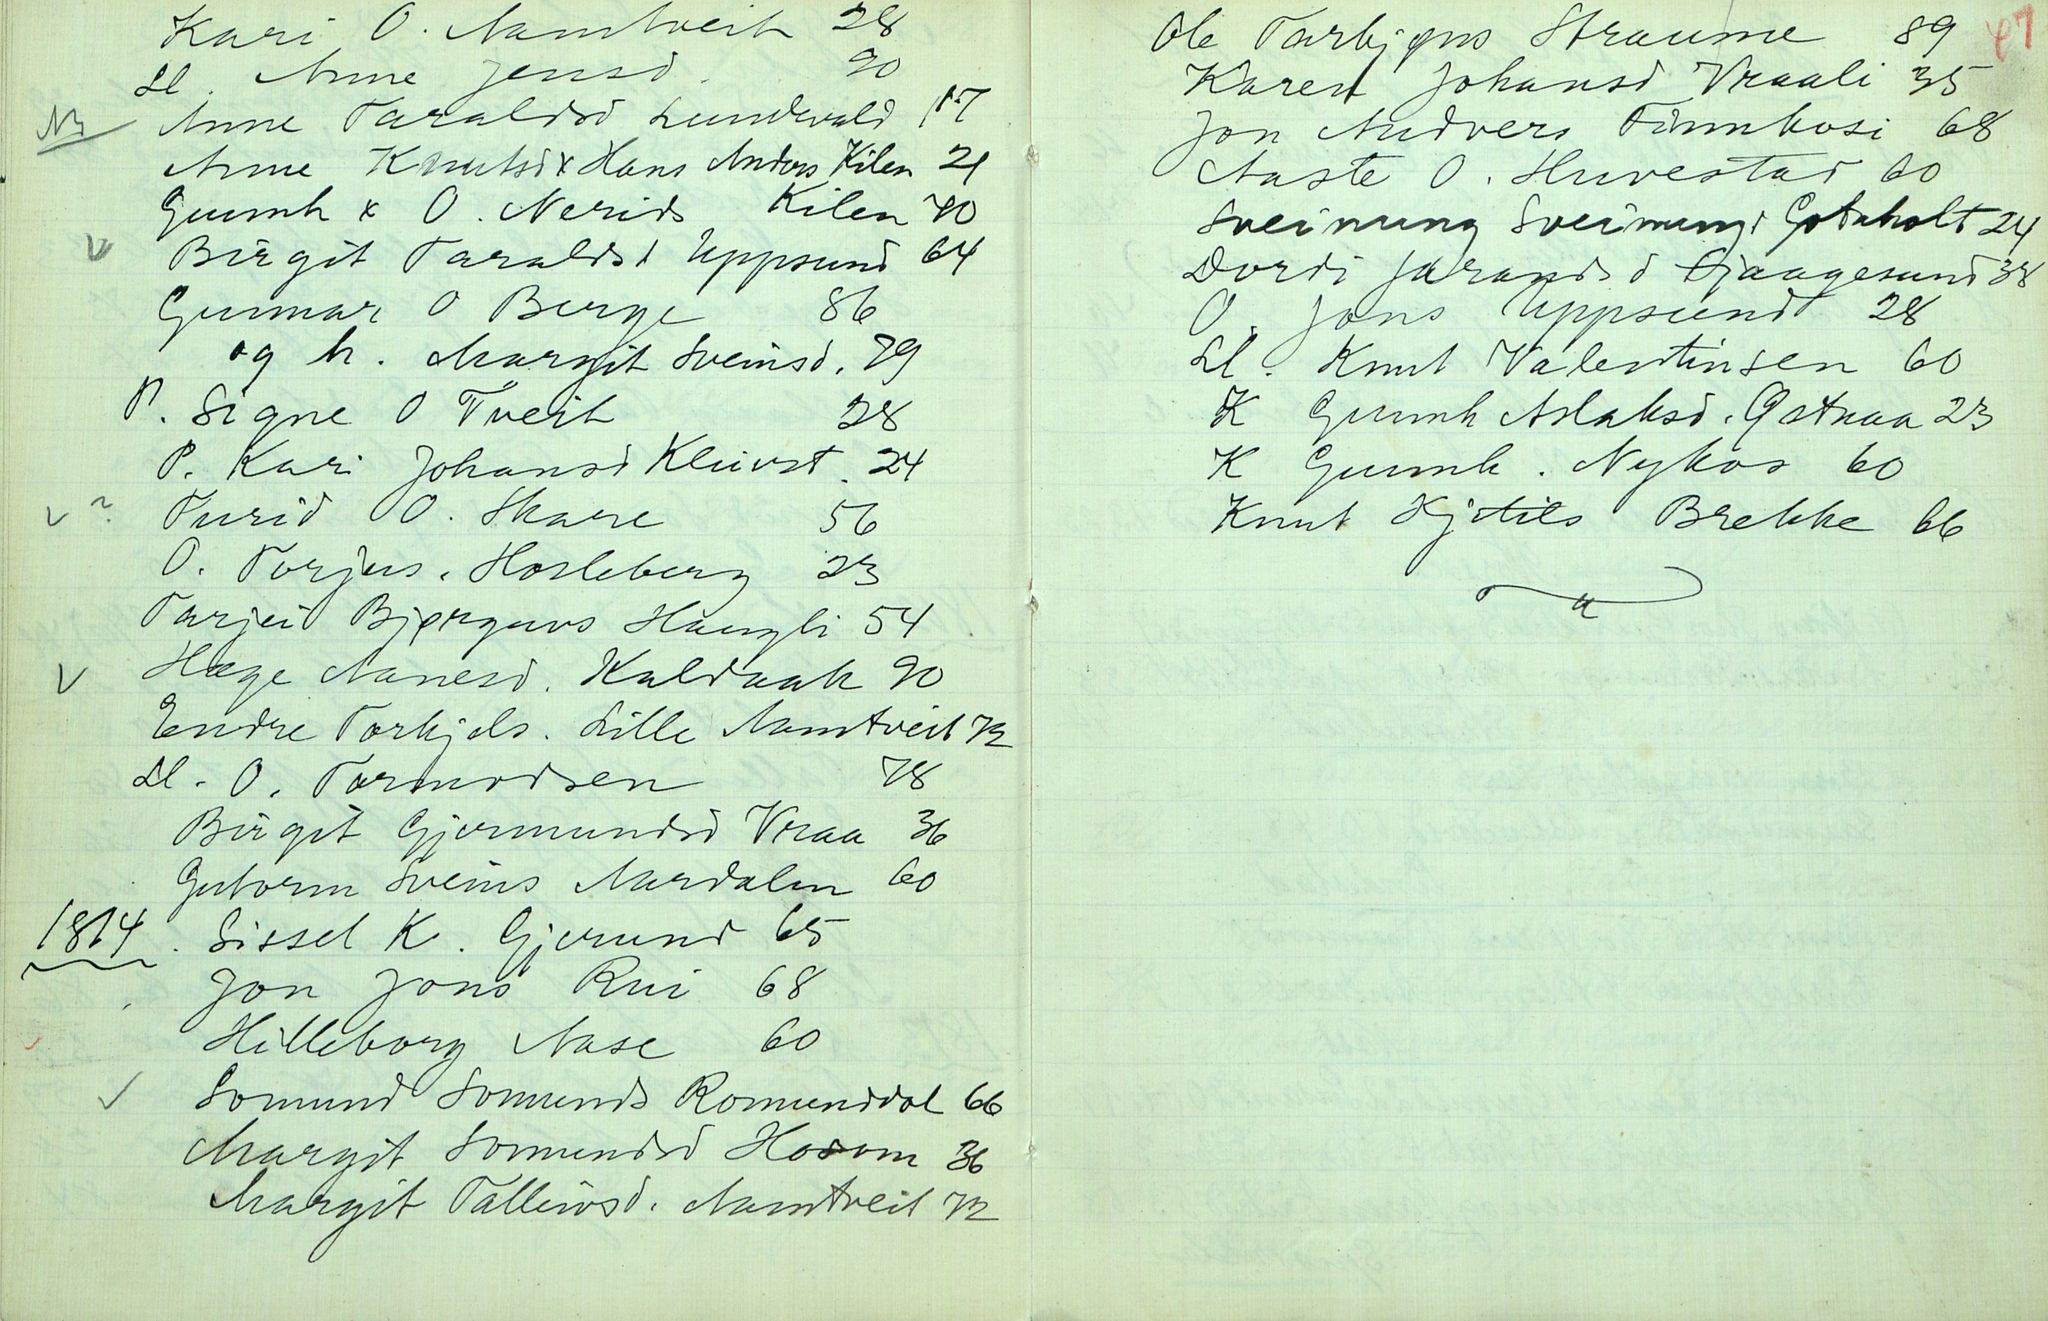 Kari O. Namtveit 28
Ll. Anne Jensd. 90
NB Anne Taraldsd Lundevald 17
Anne Knutsd x Hans Anders Kilen 21
Gunnh x O. Nerids Kilen 70
v Birgit Taraldsd Uppsund 64
Gunnar O Berge 86
og k. Margit Sveinsd. 79
P. Signe O Tveit 28
P. Kari Johansd Kleivst. 24
v ? Turid O. Skare 56
O. Torjus. Hosleberg 23
Tarjei Bjørguvs Haugli 54
v Hæge Aanesd. Kaldaak 90
Endre Torkjels. Lille Namtveit 72
Ll. O. Tormodsen 78
Birgit Gjermundsd Vraa 36
Gutorm Sveins Aardalen 60
1814. Sissel K. Gjerund 65
Jon Jons Rui 68
Hilleborg Aase 60
v Somund Somunds Romunddal 66
Margit Somundsd Hosom 36
Margit Tallivsd. Namtveit 72
47
Ole Tarkjøns Straume 89
Karen Johansd Vraali 35
Jon Andvers Finnkosi 68
Aaste O. Huvestad 60
Sveinung Sveinungs Gotuholt 24
Dordi Jarandsd Sjaagesund 38
O. Jons Uppsund 28
Ll. Knut Valentinsen 60
K Gunnh Aslaksd. Østraa 23
K Gunnh. Nykos 60
Knut Kjetils Brekke 66